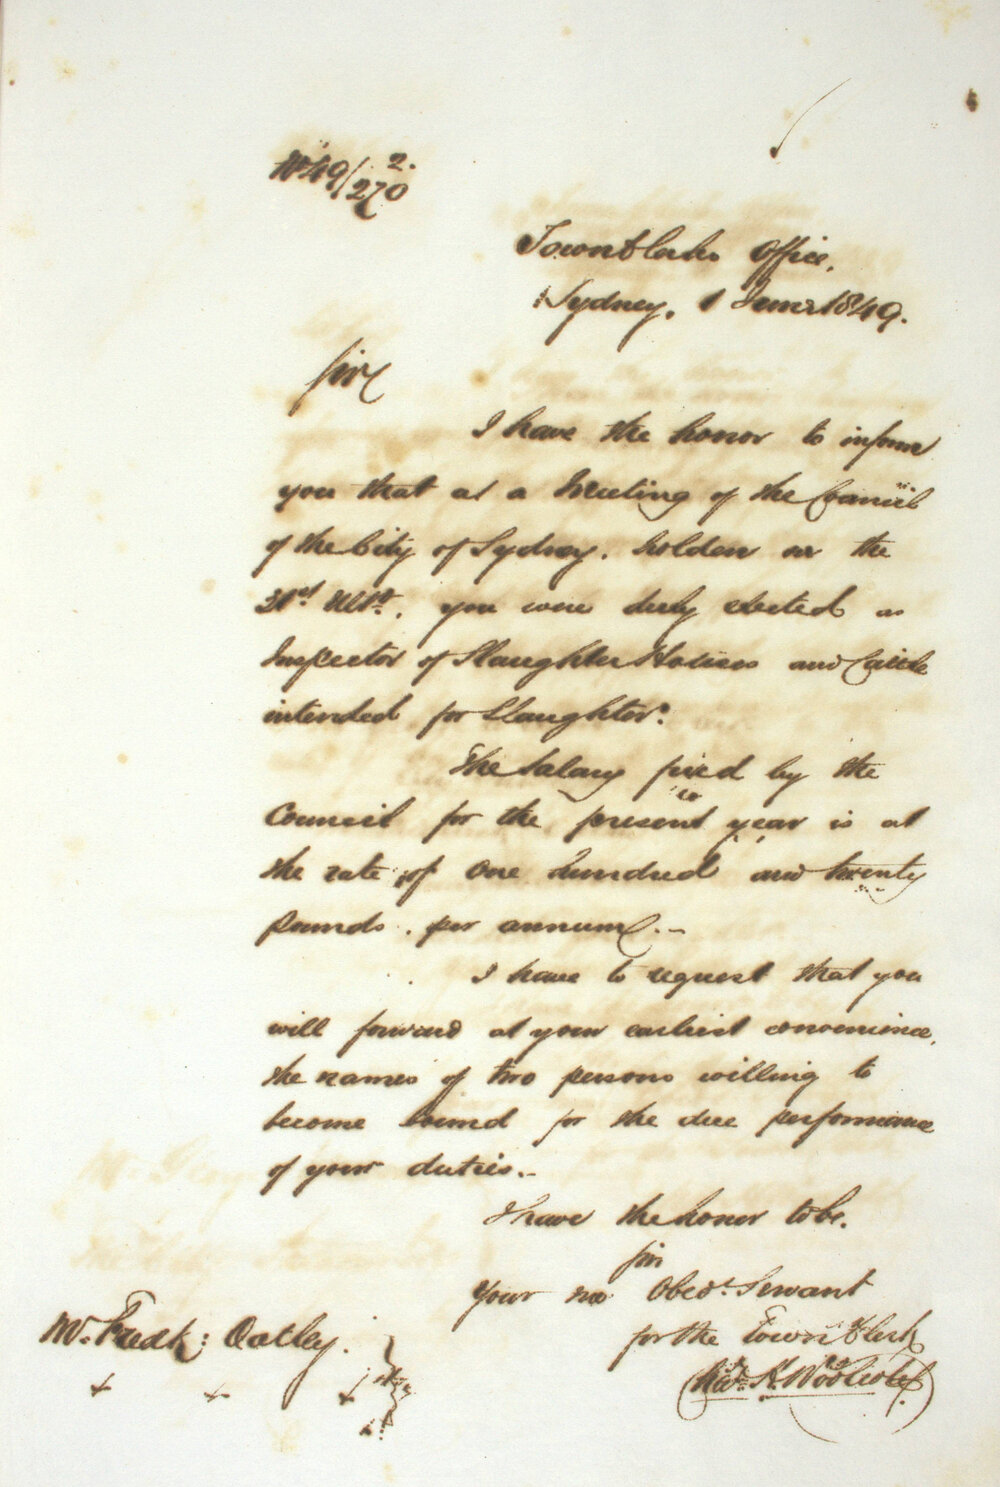 No 49/270 2.
Town Clerks Office,
Sydney, 1 June 1849.
Sir
I have the honor to inform
you that at a Meeting of the Council
of the City of Sydney, holden on the
31st Ulto., you were duly elected as
Inspector of Slaughter Houses and Cattle
intended for Slaughter.
The Salary fixed by the
Council for the present year is at
the rate of One hundred and twenty
pounds. per annum.-
I have to request that you
will forward at your earliest convenience,
the names of two persons willing to
become bound for the due performance
of your duties.-
I have the honor to be.
Sir
Your mo Obedt. Servant
for the Town Clerk
Chas. H. Woolcott
Mr. Fredk: Oatley.